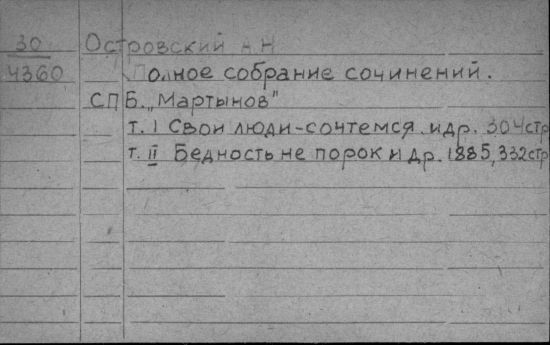 30 Островский А.Н
4360 Полное собрание сочинений.
СПБ. „Мартынов"
т. I Свои люди-сочтемся и др. 304стр
т. II Бедность не порок и др. 1885, 332стр